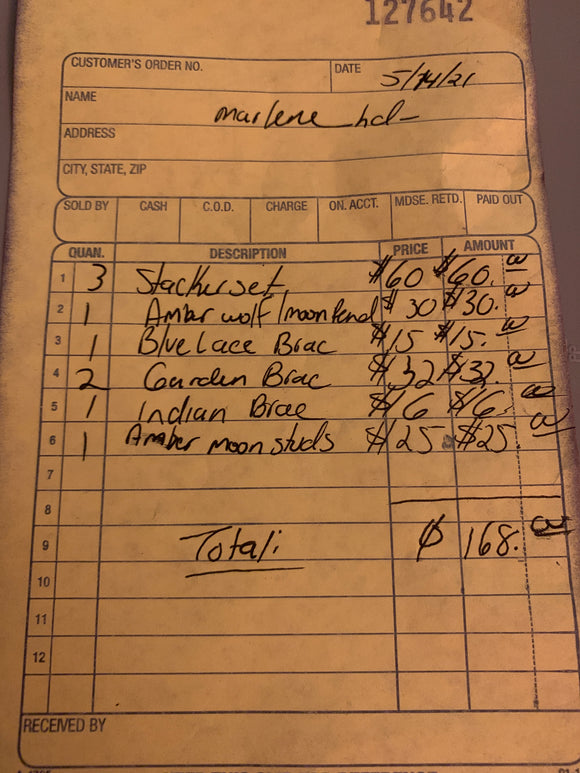 127642
CUSTOMER'S ORDER NO. DATE 5/14/21
NAME Marlene
ADDRESS
CITY, STATE, ZIP
SOLD BY CASH C.O.D. CHARGE ON. ACCT. MDSE. RETD. PAID OUT
QUAN. DESCRIPTION PRICE AMOUNT
1 3 Stacker set. $60 $60. 00
2 1 Amber wolf/moon pend $30 $30. 00
3 1 Blue Lace Brac $15 $15. 00
4 2 Garden Brac $32 $32. 00
5 1 Indian Brac $16 $16. 00
6 1 Amber moon studs $25 $25. 00
7
8
9 Total: $ 168. 00
10
11
12
RECEIVED BY